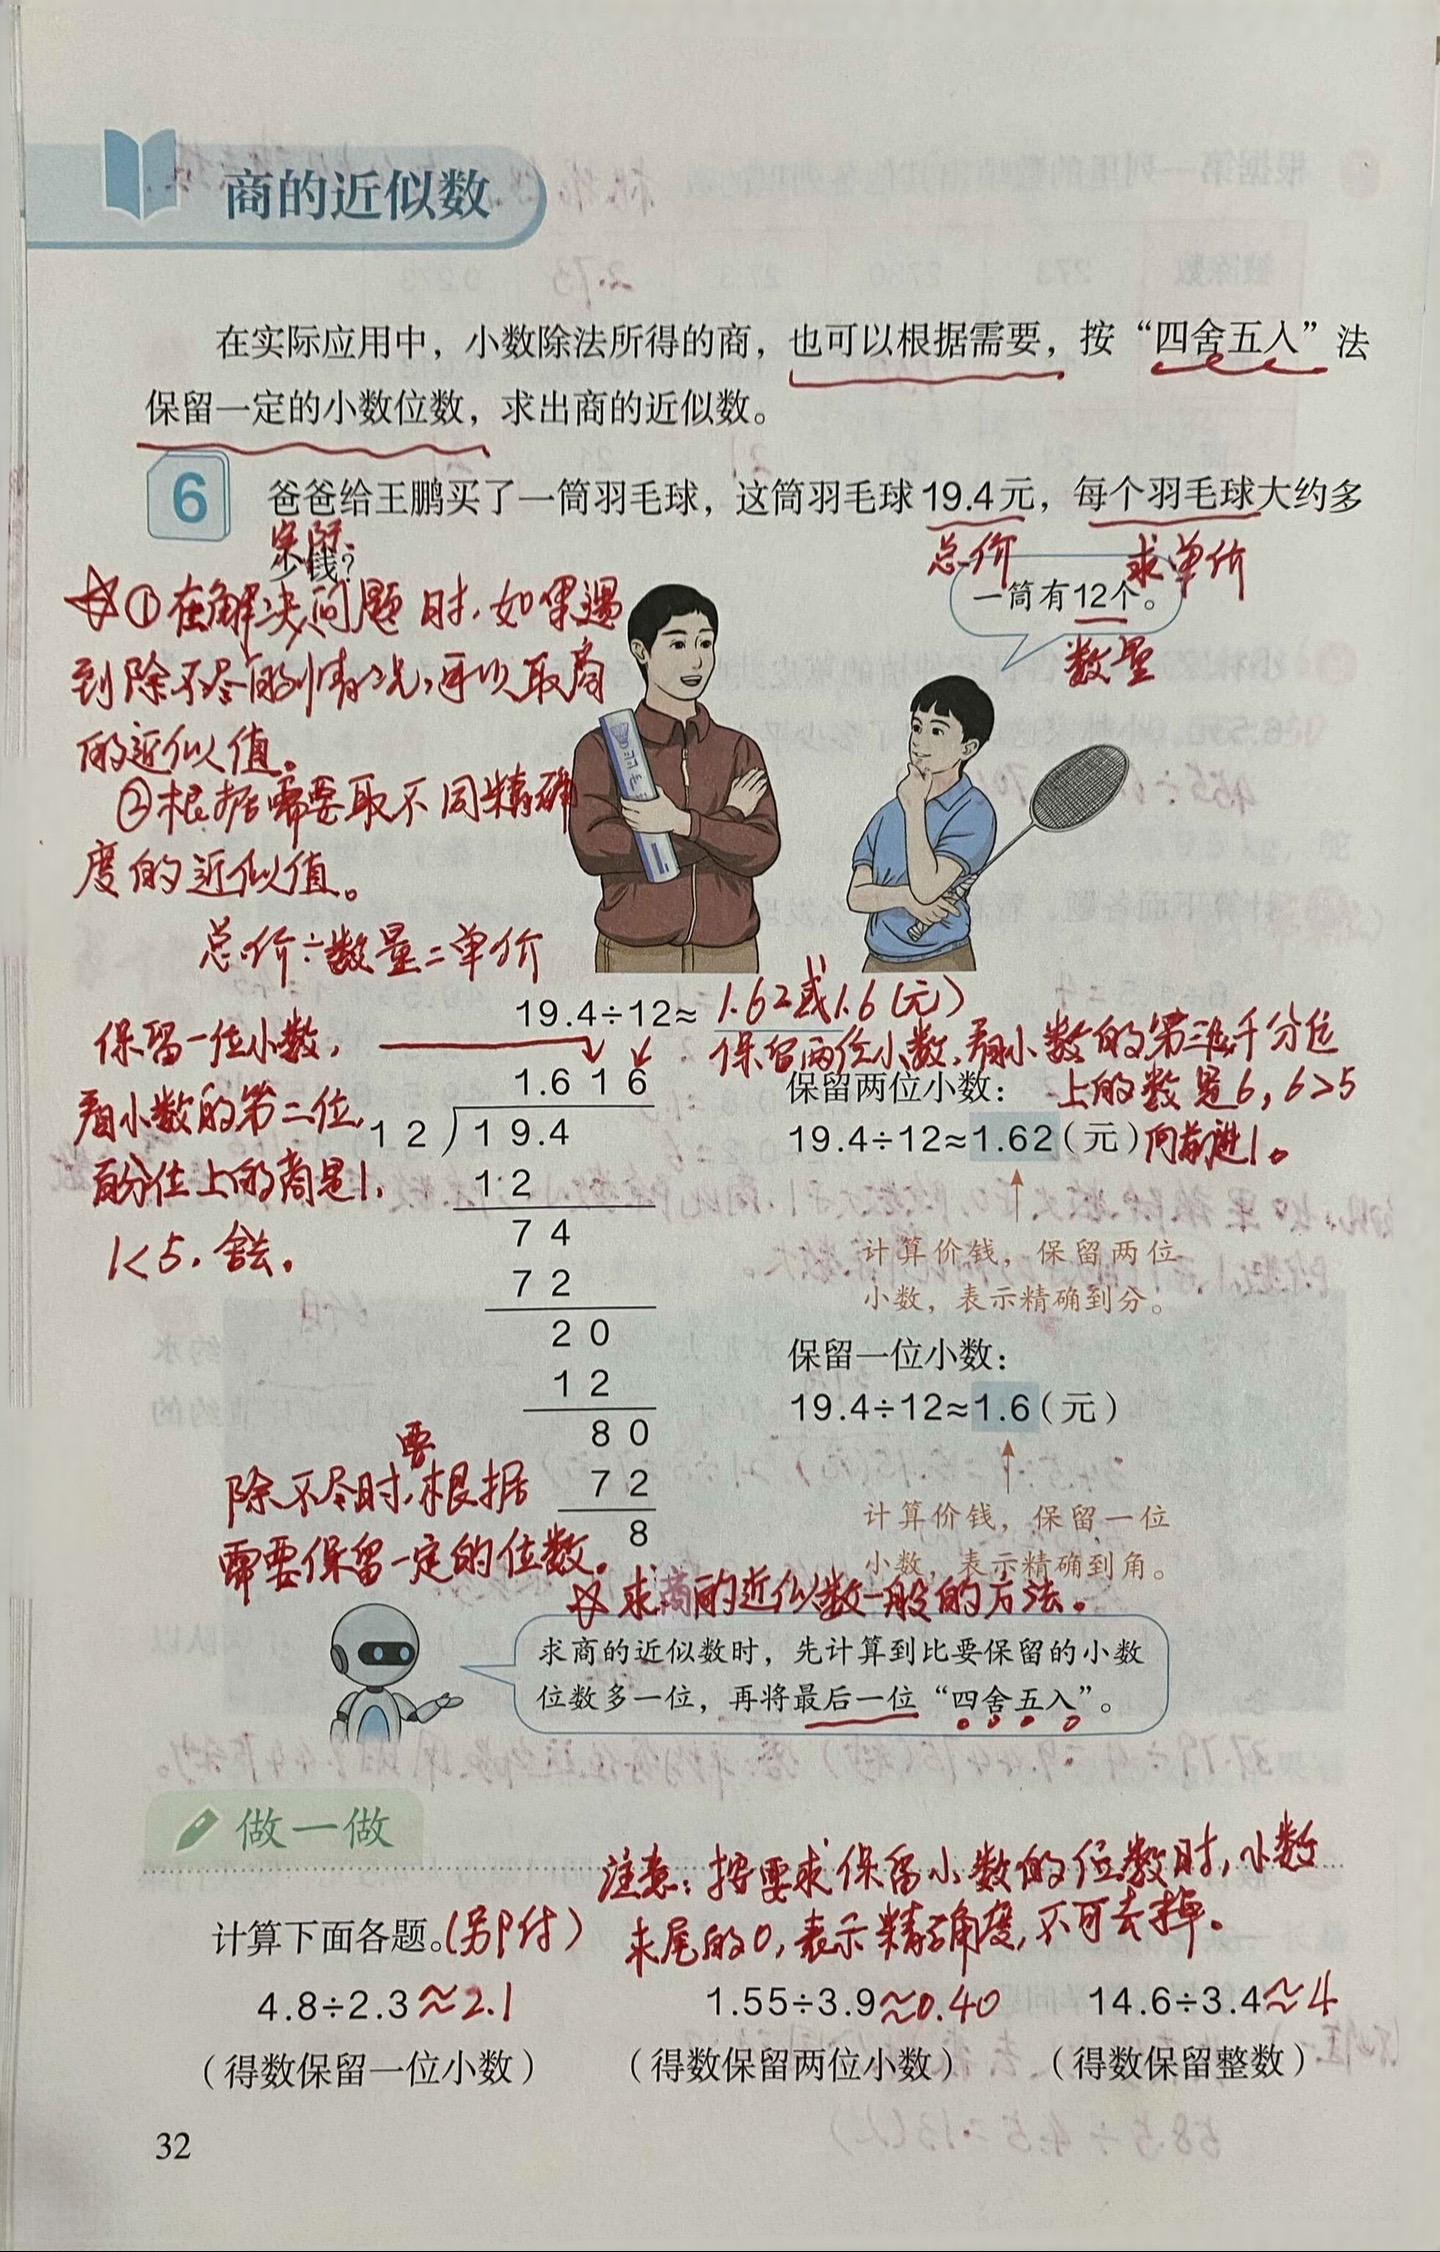 商的近似数
在实际应用中，小数除法所得的商，也可以根据需要，按“四舍五入”法
保留一定的小数位数，求出商的近似数。
6 爸爸给王鹏买了一筒羽毛球，这筒羽毛球19.4元，每个羽毛球大约多
少钱？
总价
求单价
一筒有12个。
数量
①在解决问题时，如果遇
到除不尽的情况，可以取商
的近似值。
②根据需要取不同精确
度的近似值。
总价÷数量=单价
19.4÷12≈ 1.62或1.6(元)
保留一位小数，
看小数的第二位，
百分位上的商是1，
1<5，舍去。
1.616
12
19.4
12
74
72
20
12
80
72
8
保留两位小数，看小数的第三位千分位
上的数是6，6>5
向前进1。
保留两位小数：
19.4÷12≈1.62（元）
计算价钱，保留两位
小数，表示精确到分。
保留一位小数：
19.4÷12≈1.6（元）
计算价钱，保留一位
小数，表示精确到角。
除不尽时，要根据
需要保留一定的位数。
求商的近似数一般的方法。
求商的近似数时，先计算到比要保留的小数
位数多一位，再将最后一位“四舍五入”。
做一做
注意：按要求保留小数的位数时，小数
末尾的0，表示精确度，不可去掉。
计算下面各题。(另附)
4.8÷2.3≈2.1 1.55÷3.9≈0.40 14.6÷3.4≈4
（得数保留一位小数） （得数保留两位小数） （得数保留整数）
32